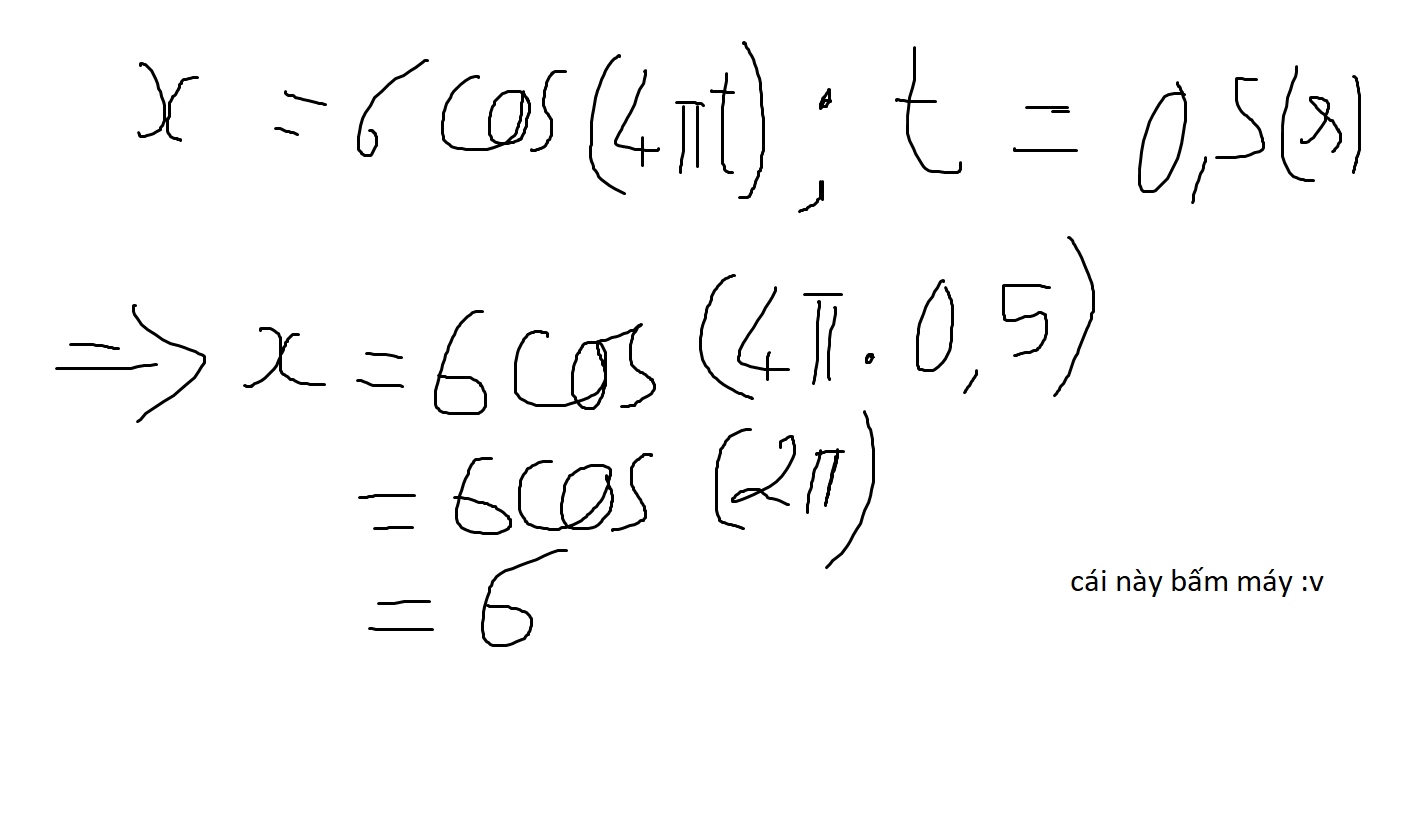 x = 6 cos(4πt); t = 0,5(s)
=> x = 6 cos (4π . 0,5)
= 6 cos (2π)
= 6
cái này bấm máy :v